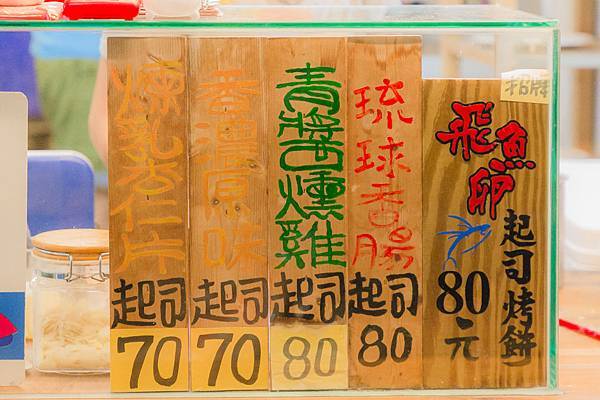 煉乳杏仁片
起司
70
香濃原味
起司
70
青醬燻雞
起司
80
琉球香腸
起司
80
招牌
飛魚卵
起司烤餅
80元